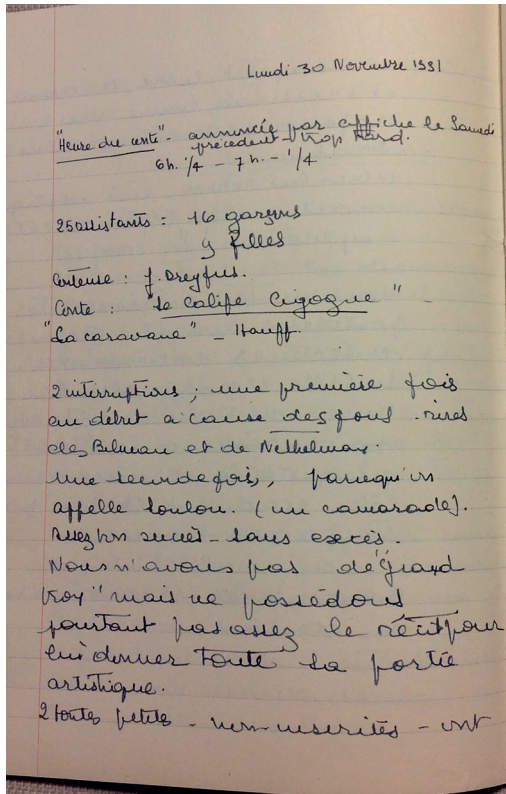 Lundi 30 Novembre 1931
"Heure du conte" - annoncée par affiche le Samedi
précédent - trop tard.
6h. 1/4 - 7h. - 1/4
25 assistants : 16 garçons
9 filles
Conteuse : J. Dreyfus.
Conte : "Le Calife Cigogne" -
"La caravane" - Hauff.
2 interruptions ; une première fois
au début à cause des fous - rires
des et de
une seconde fois, parcequ'on
appelle Loulou. (un camarade).
Assez bon succès - sans excès.
Nous n'avons pas de
mais ne possédons
pourtant pas assez le récit pour
lui donner toute sa portée
artistique.
2 toutes petites - non inscrites - ont